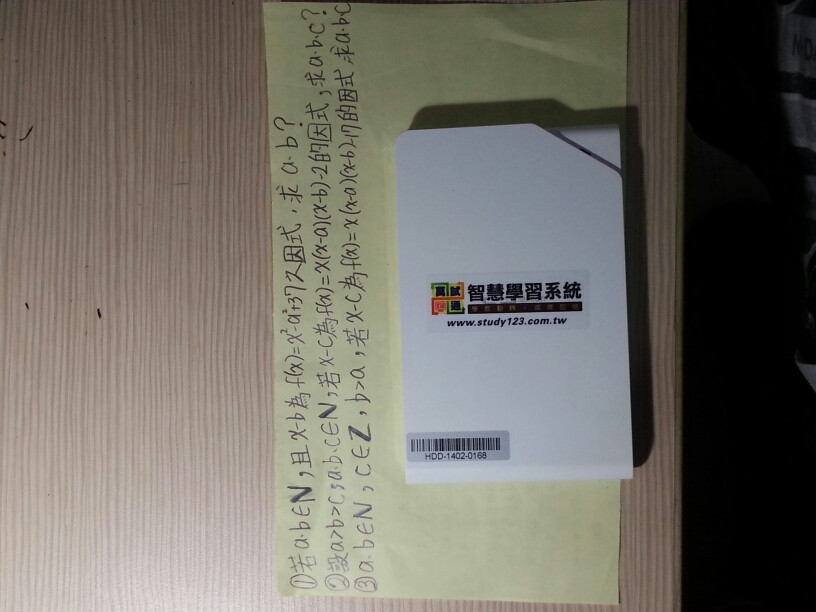 ①若a.b∈N，且x-b為f(x)=x²-a²+37之因式，求a.b？
②設a>b>c，a.b.c∈N，若x-c為f(x)=x(x-a)(x-b)-2的因式，求a.b.c？
③a.b∈N，c∈Z，b>a，若x-c為f(x)=x(x-a)(x-b)-17的因式，求a.b.c
真試
通
智慧學習系統
www.study123.com.tw
HDD-1402-0168